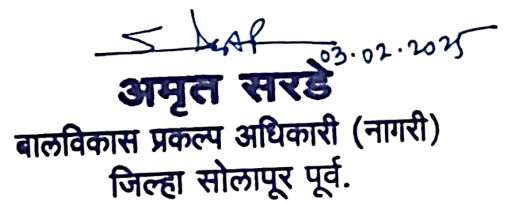 03.02.2025
अमृत सरडे
बालविकास प्रकल्प अधिकारी (नागरी)
जिल्हा सोलापूर पूर्व.